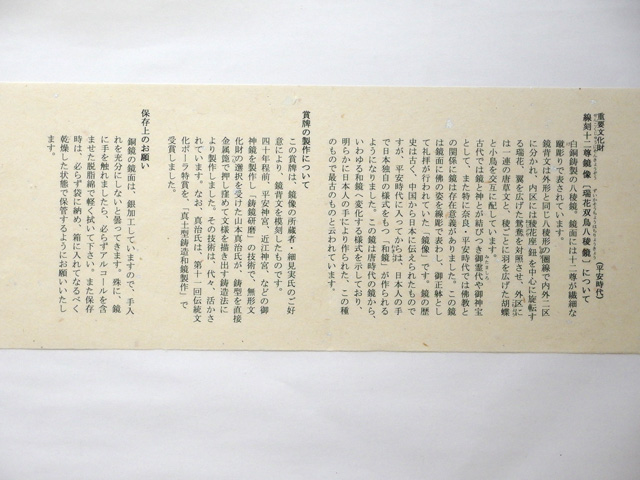 重要文化財
線刻十二尊鏡像〔瑞花双鳥八稜鏡〕について
（平安時代）
白銅鋳製の八稜鏡。鏡面には十二尊が繊細な
蹴彫りで表されています。
鏡背文は、外形と同じ八稜形の圏線で内外二区
に分かれ、内区には稜花座鈕を中心に旋転す
る瑞花、翼を広げた鴛鴦を対置させ、外区に
は一連の唐草文と、稜ごとに羽を広げた胡蝶
と小鳥を交互に配しています。
古代では鏡と神とが結びつき御霊代や御神宝
として、また特に奈良・平安時代では佛教と
の関係に鏡は存在意義がありました。この鏡
は鏡面に佛の姿を線彫で表わし、御正躰とし
て礼拝が行われていた「鏡像」です。鏡の歴
史は古く、中国から日本に伝えられたもので
すが、平安時代に入ってから、日本人の手
で日本独自の様式をもつ「和鏡」が作られる
ようになりました。この鏡は唐時代の鏡から、
いわゆる和鏡へ変化する様式を示しており、
明らかに日本人の手により作られた、この種
のもので最古のものと云われています。
賞牌の製作について
この賞牌は、鏡像の所蔵者・細見実氏のご好
意により、鏡背文を模刻したものです。
四十年程前、平安神宮、近江神宮、などの御
神鏡を製作（鋳鏡研磨）の技術で、無形文
化財の選択を受けた山本真治氏が、鋳型を直接
金属箆で押し窪めて文様を描き出す鋳造法に
より製作しました。その技術は、代々、活かさ
れています。なお、真治氏は、第十一回伝統文
化ポーラ特賞を、「真土型鋳造和鏡製作」で
受賞しました。
保存上のお願い
銅鏡の鏡面は、銀加工していますので、手入
れを充分にしないと曇ってきます。殊に、鏡
に手を触れましたら、必らずアルコールを含
ませた脱脂綿で軽く拭いて下さい。また保存
時は、必らず袋に納め、箱に入れてなるべく
乾燥した状態で保管するようにお願いいたし
ます。